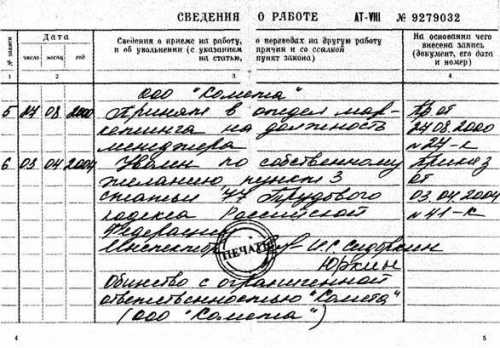 СВЕДЕНИЯ О РАБОТЕ АТ-VIII № 9279032
№ записи
Дата
число месяц год
Сведения о приеме на работу, о переводах на другую работу
и об увольнении (с указанием причин и со ссылкой
на статью, пункт закона)
На основании чего
внесена запись
(документ, его дата
и номер)
1 2 3 4
ООО "Комета"
5 27 08 2000 Принят в отдел мар- Пр. от
кетинга на должность 27.08.2000
менеджера № 27-к
6 03 04 2004 Уволен по собственному Приказ
желанию, пункт 3 от
статьи 77 Трудового 03.04.2004
кодекса Российской № 41-к
Федерации
Инспектор И.С. Сидоркин
ПЕЧАТЬ
Юркин
Общество с ограниченной
ответственностью "Комета"
(ООО "Комета")
4 5